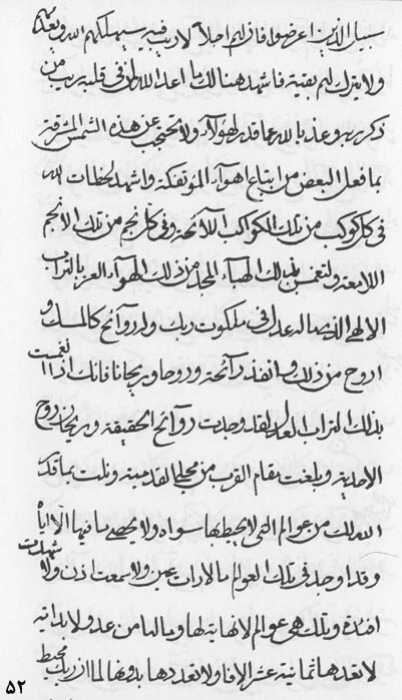 سبيل الذين اعرضوا فان لهم اجلاً لا ريب فيه سيهلكهم الله ويعذبهم
ولا يترك لهم بقية فاشهد هنالك ما اعد الله لمن في قلبه ريب من
ذكر ربه وعذ بالله عما قدر لهؤلاء ولا تحتجب عن هذه الشمس المشرقة
بما فعل البعض من اتباع اهواء المؤتفكة واشهد لحظات الله
في كل كوكب من تلك الكواكب اللائحة وفي كل نجم من تلك الانجم
اللامعة ولتغمس بذلك الهباء من ذلك الهواء بالتراب
الالهي الذي في ملكوت ربك وله روائح كالمسك و
اروح من ذلك و انفذ رائحة وروحا وريحانا فانك اذا التغمست
بذلك التراب لقد وجدت روائح الحقيقة وريحان روح
الاحدية وبلغت مقام القرب من وقلت بما قدر
الله لك من عوالم التي لا يحيطها سواه ولا يحصي ما فيها الا اياه
وقد اوجد في تلك العوالم ما لا رات عين ولا سمعت اذن ولا شهدت
افئدة وتلك هي عوالم لا نهاية لها وما لها من عد ولا بداية
لا تعدها ثمانية عشر الاف ولا تعددها بدونها لما ان ربك محيط
۵۲